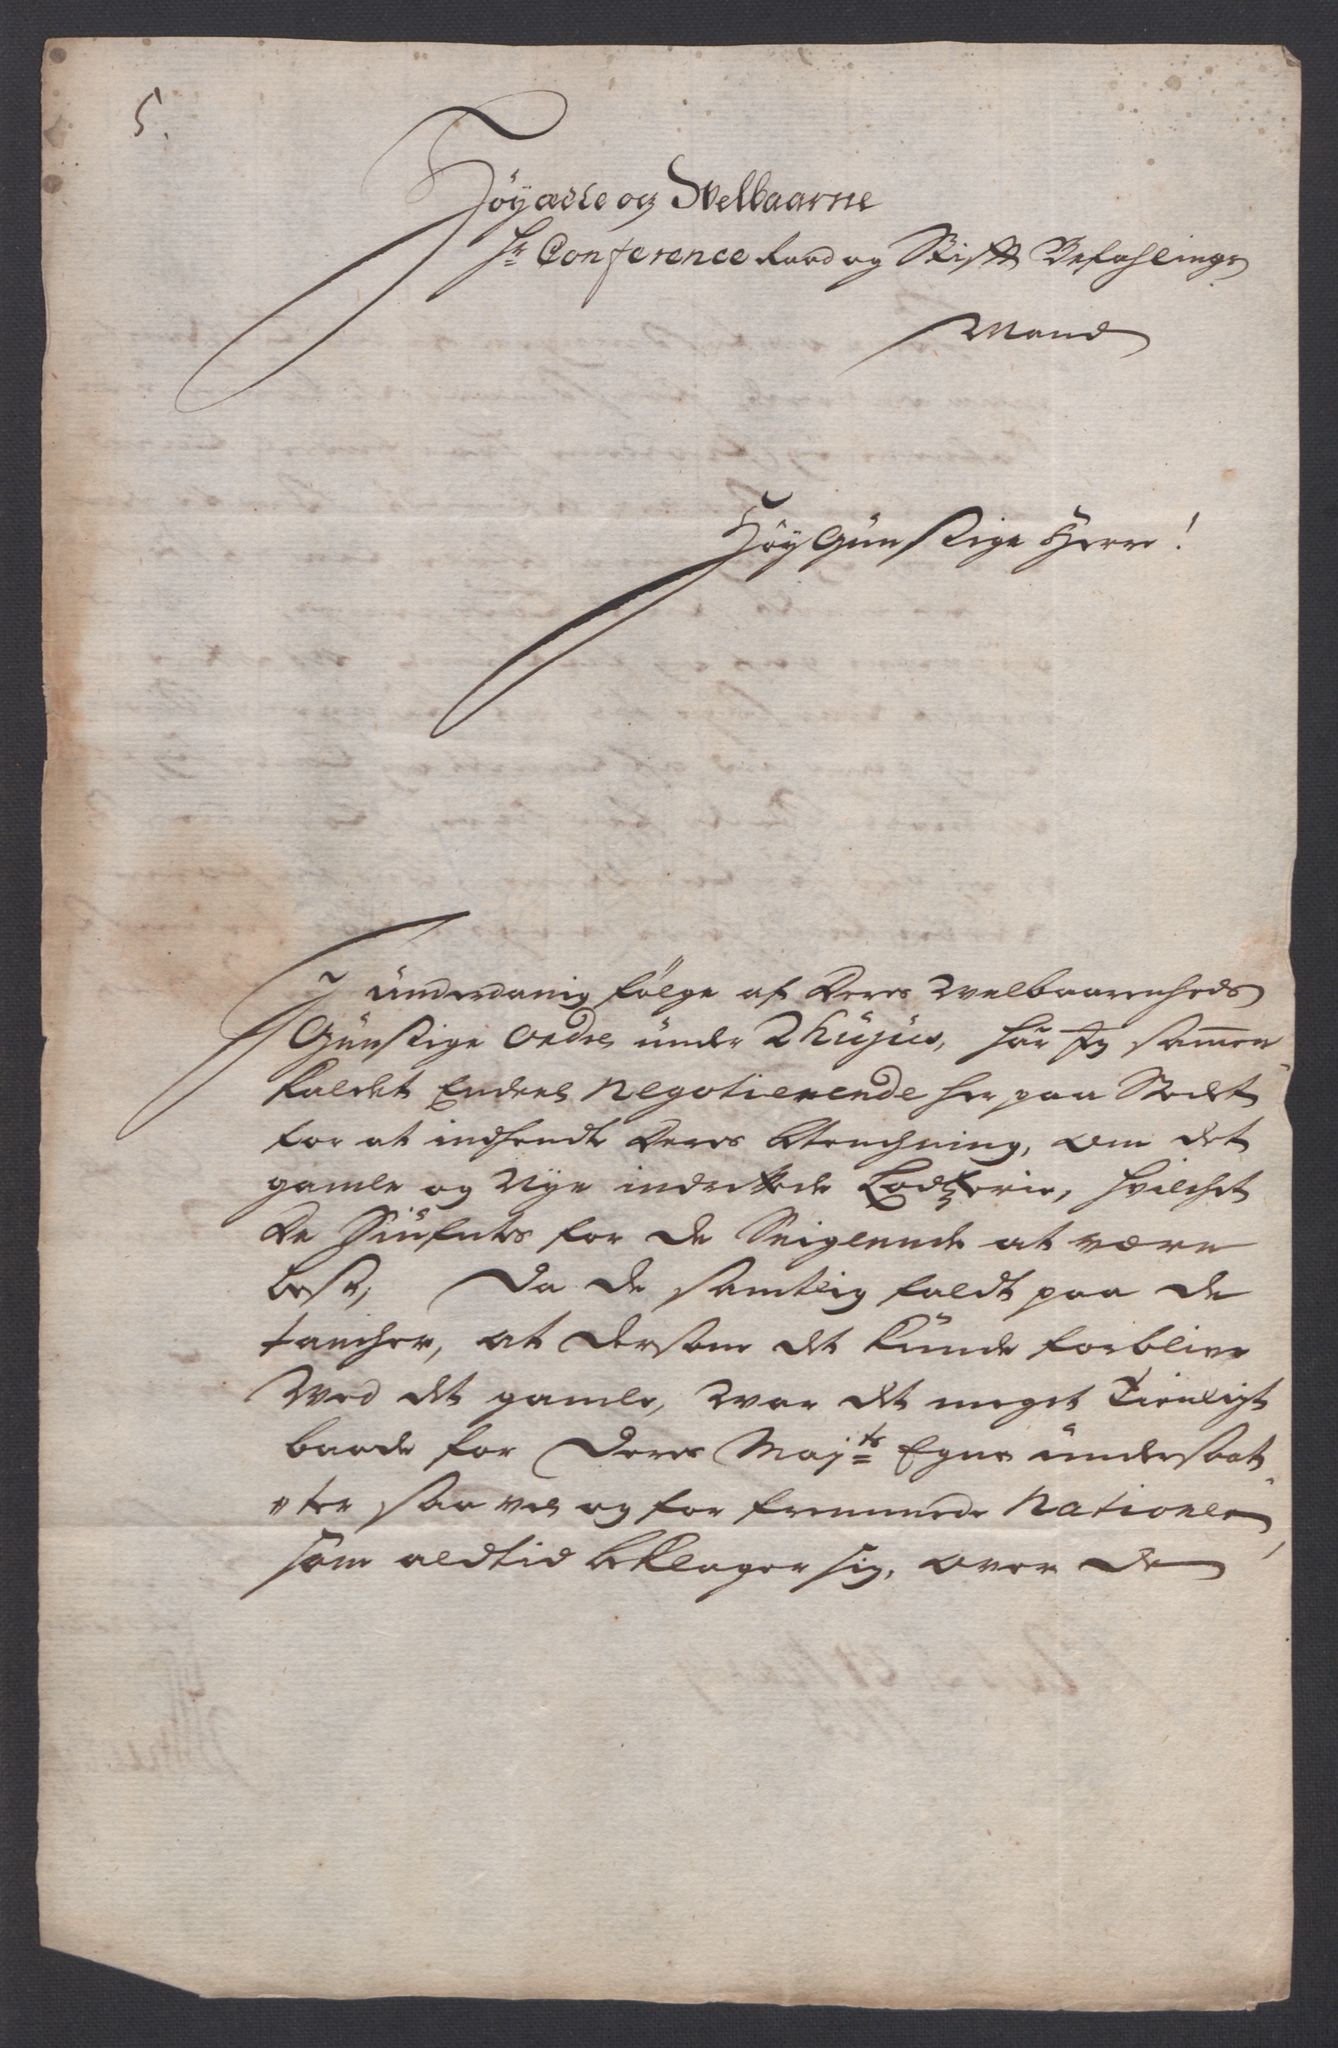 5.
Høyædle og Velbaarne
Hr Conference Raad og Stift Befahlings
Mand
Høy Günstige Herre!
I ünderdanig følge af Deres Welbaarenheds
Günstige Ordre ünder 2 hujus, har Jeg samen
kaldet Endeel Negotierende her paa Stedet
for at indhendte Deres Betenchning, om det
gamle og Nye indrettede Lodtzerie, hvilchet
De Siufntes for de Seiglende at være
best, Da de samtlig faldt paa de
tancher, at dersom det künde forblive
Ved det gamle, War det meget Tienligt
baade for Deres Majts Egne ündersaat
"ter saa vel og for fremmede Nationer,
som aldtid beklager sig, over de